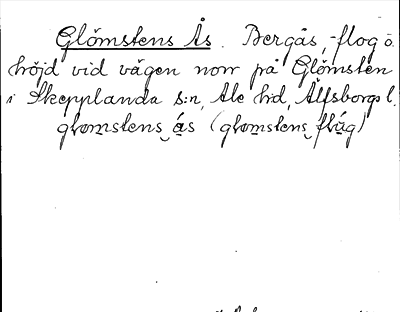 Glömstens Ås. Bergås, -flog o.
höjd vid vägen norr på Glömsten
i Skepplanda s:n, Ale hd, Älfsborgs l.
glomstens ås (glomstens flúg)